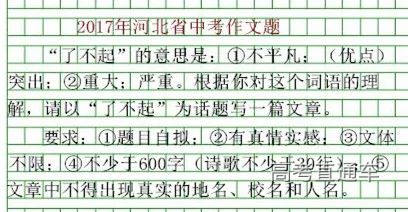 2017年河北省中考作文题
“了不起”的意思是：①不平凡；（优点）
突出；②重大；严重。根据你对这个词语的理
解，请以“了不起”为话题写一篇文章。
要求：①题目自拟；②有真情实感；③文体
不限；④不少于600字（诗歌不少于20行）；⑤
文章中不得出现真实的地名、校名和人名。
高考直通车